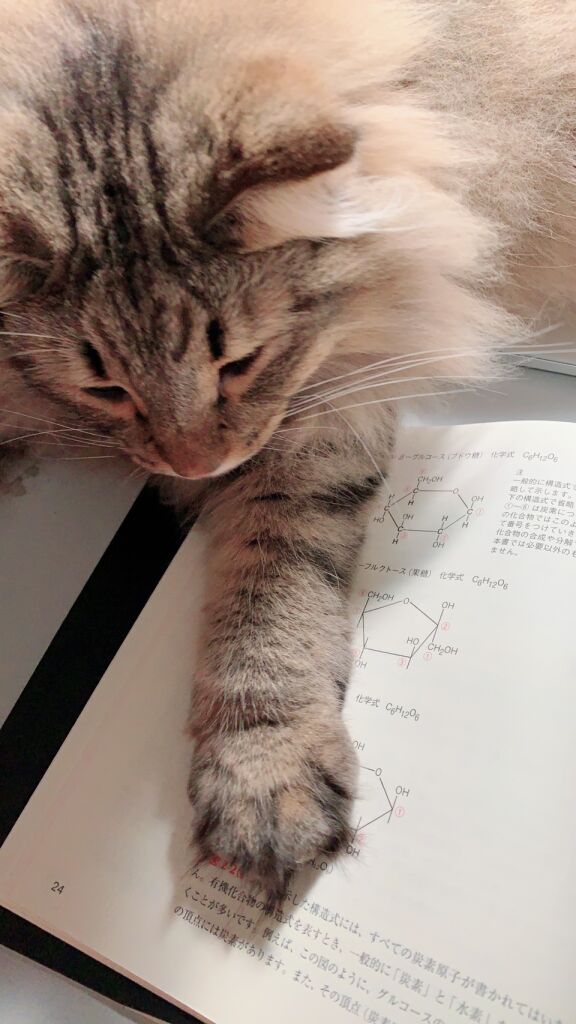 α-グルコース(ブドウ糖) 化学式 C₆H₁₂O₆
注
一般的に構造式で
略して示します。
下の構造式で省略
①〜⑥は炭素につ
の化合物ではこのよ
て番号をつけていき
化合物の合成や分解
本書では必要以外のも
ません。
CH₂OH
O
H
H
OH
HO
H
H
①
OH
フルクトース(果糖) 化学式 C₆H₁₂O₆
①CH₂OH
O
OH
②
HO
CH₂OH
③
①
OH
化学式 C₆H₁₂O₆
OH
O
OH
①
②
OH
ん。有機化合物の構造式を表すとき、一般的に「炭素」と「水素」
示した構造式には、すべての炭素原子が書かれてはい
くことが多いです。例えば、この図のように、グルコースの
の頂点には炭素があります。また、その頂点(炭素
24